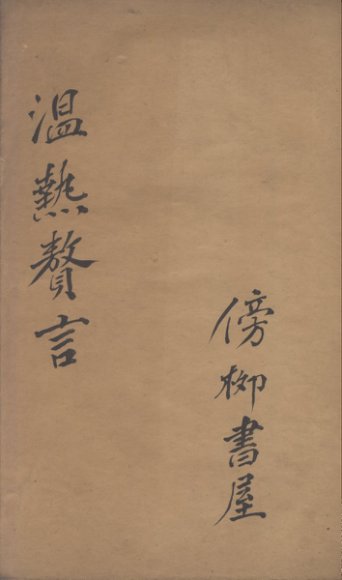 傍柳書屋
溫熱贅言